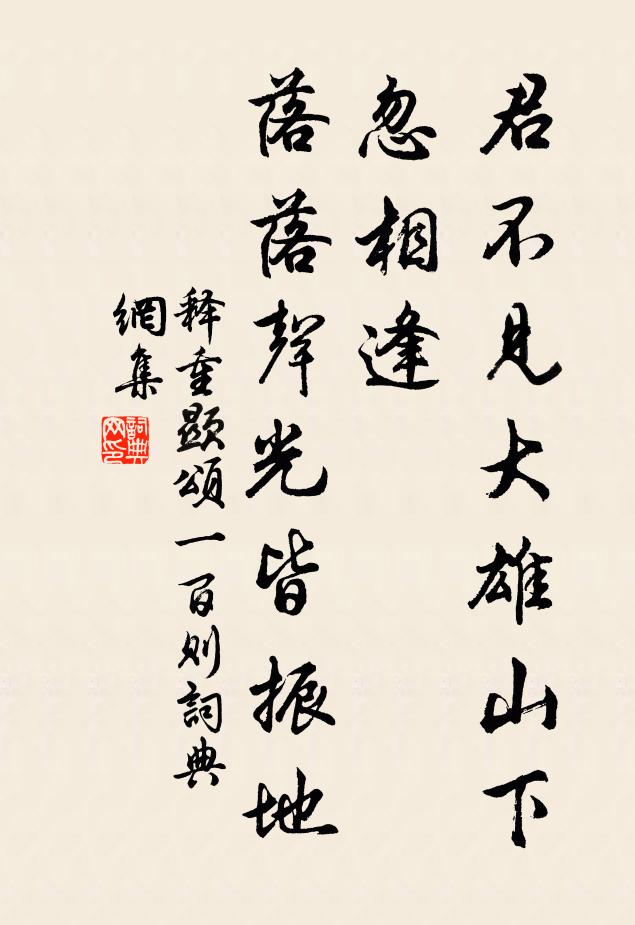 君不見大雄山下
忽相逢
落落聲光皆振地
释重顯頌一百则詞典
網集
詞典
网印